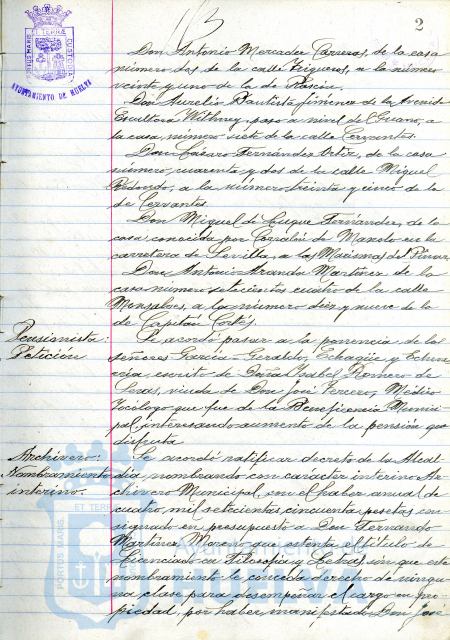 2
PORTUS MARIS ET TERRAE CUSTODIA
AYUNTAMIENTO DE HUELVA
Don Antonio Mercader Carreras, de la casa
número dos de la calle Trigueros, a la número
veinte y uno de la de Rascón.
Don Aurelio Bautista Jimenez de la Avenida
Escultora Withney, paso a nivel de Guano, a
la casa, número siete de la calle Cervantes.
Don Lázaro Fernández Ortiz, de la casa
número cuarenta y dos de la calle Miguel
Redondo, a la número treinta y cinco de la
de Cervantes.
Don Miguel de Luque Fernández, de la
casa conocida por Corralón de Manolo en la
carretera de Sevilla, a las Marismas del Pinar
Don Antonio Aranda Martínez de la
casa número setecientos cuatro de la calle
a la número diez y nueve de la
de Capitán Cortés.
Pensionista: Se acordó pasar a la ponencia de los
Petición señores García-Geraldo, Echagüe y
escrito de Doña Isabel Romero de
viuda de Don José Tercero, Médico
Tocólogo que fué de la Beneficencia Munici
pal, interesando aumento de la pensión que
disfruta
Archivero: Se acordó ratificar decreto de la Alcal
Nombramiento día, nombrando con carácter interino Ar
interino. chivero Municipal, con el haber anual de
cuatro mil setecientas cincuenta pesetas con
signado en presupuesto a Don Fernando
Martínez Moreno que ostenta el título de
Licenciado en Filosofía y Letras, sin que este
nombramiento le conceda derecho de ningu
na clase para desempeñar el cargo en pro
piedad, por haber manifestado Don José